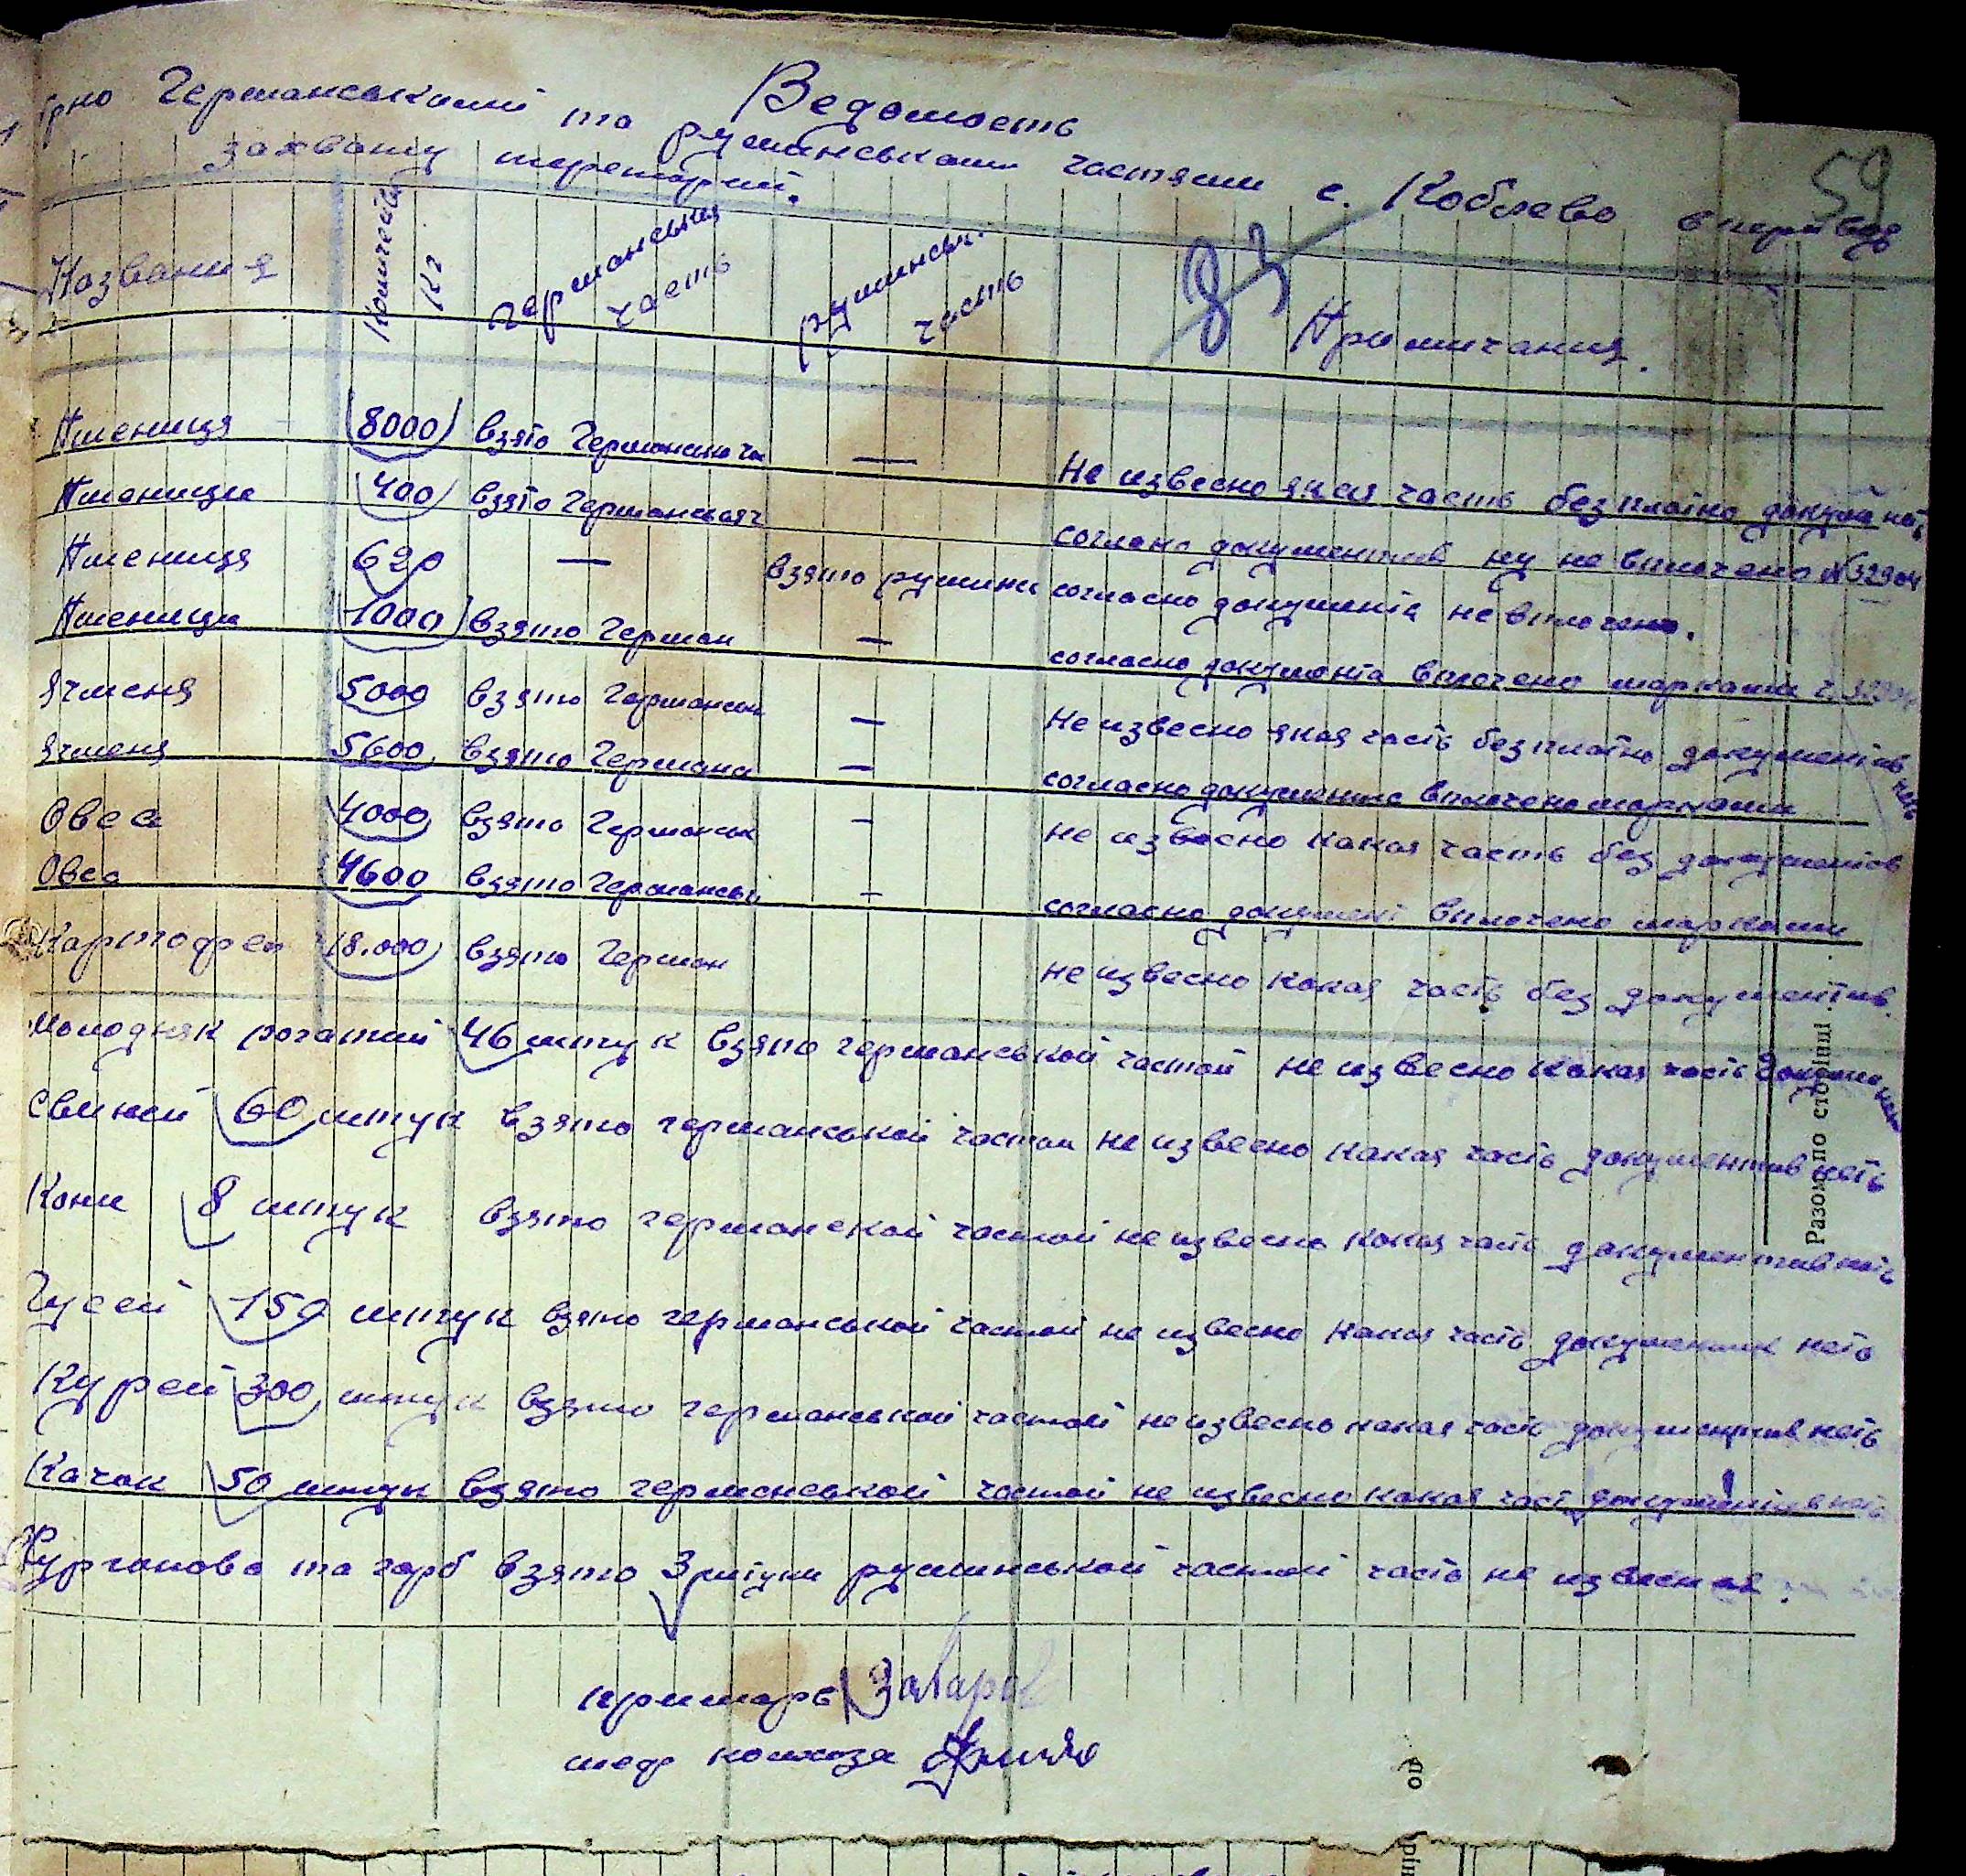 Ведомость
59
рно Германськими та руманськами частями с. Коблево в период
захвату територий.
Названия
Количество Кг
германськая часть
румынськ. часть
83
Примичания.
Пшениця (8000) взято Германскою ча — Не извесно якая часть безплатно докум. нет
Пшеници (400) взято Германськая ч согласно документов ну не вплочено N 52904
Пшениця 620 — взято румини согласно документа не вплочено.
Пшеници (1000) взято Герман — согласно документа вплочено марками
Ячменя 5000 взято Германськ — Не извесно якая часть безплатно документов неть
Ячменя 5600 взято Германа — согласно документа вплочено марками
Овса 4000 взято Германськ — не извесно какая часть без документов
Овса 4600 взято Германськ — согласно документ вплочено марками
Картофел 18.000 взято Герман не извесно какая часть без документив.
Молодняк рогатий 46 штук взято германськой частой не извесно какая часть
Свиней 60 штук взято германськой частой не извесно какая часть документив неть
Кони 8 штук взято германской частой не извесно какая часть документив неть
Гусей 150 штук взято германськой частой не извесно какая часть документив неть
Курей 300 штук взято германськой частой не извесно какая часть документив неть
Качак 50 штук взято германськой частой не извесно какая част документив неть
та гарб взято 3 штуки руминськой частой часть не известна.
примарь
колхоза
Разом по сторінці
по
рін